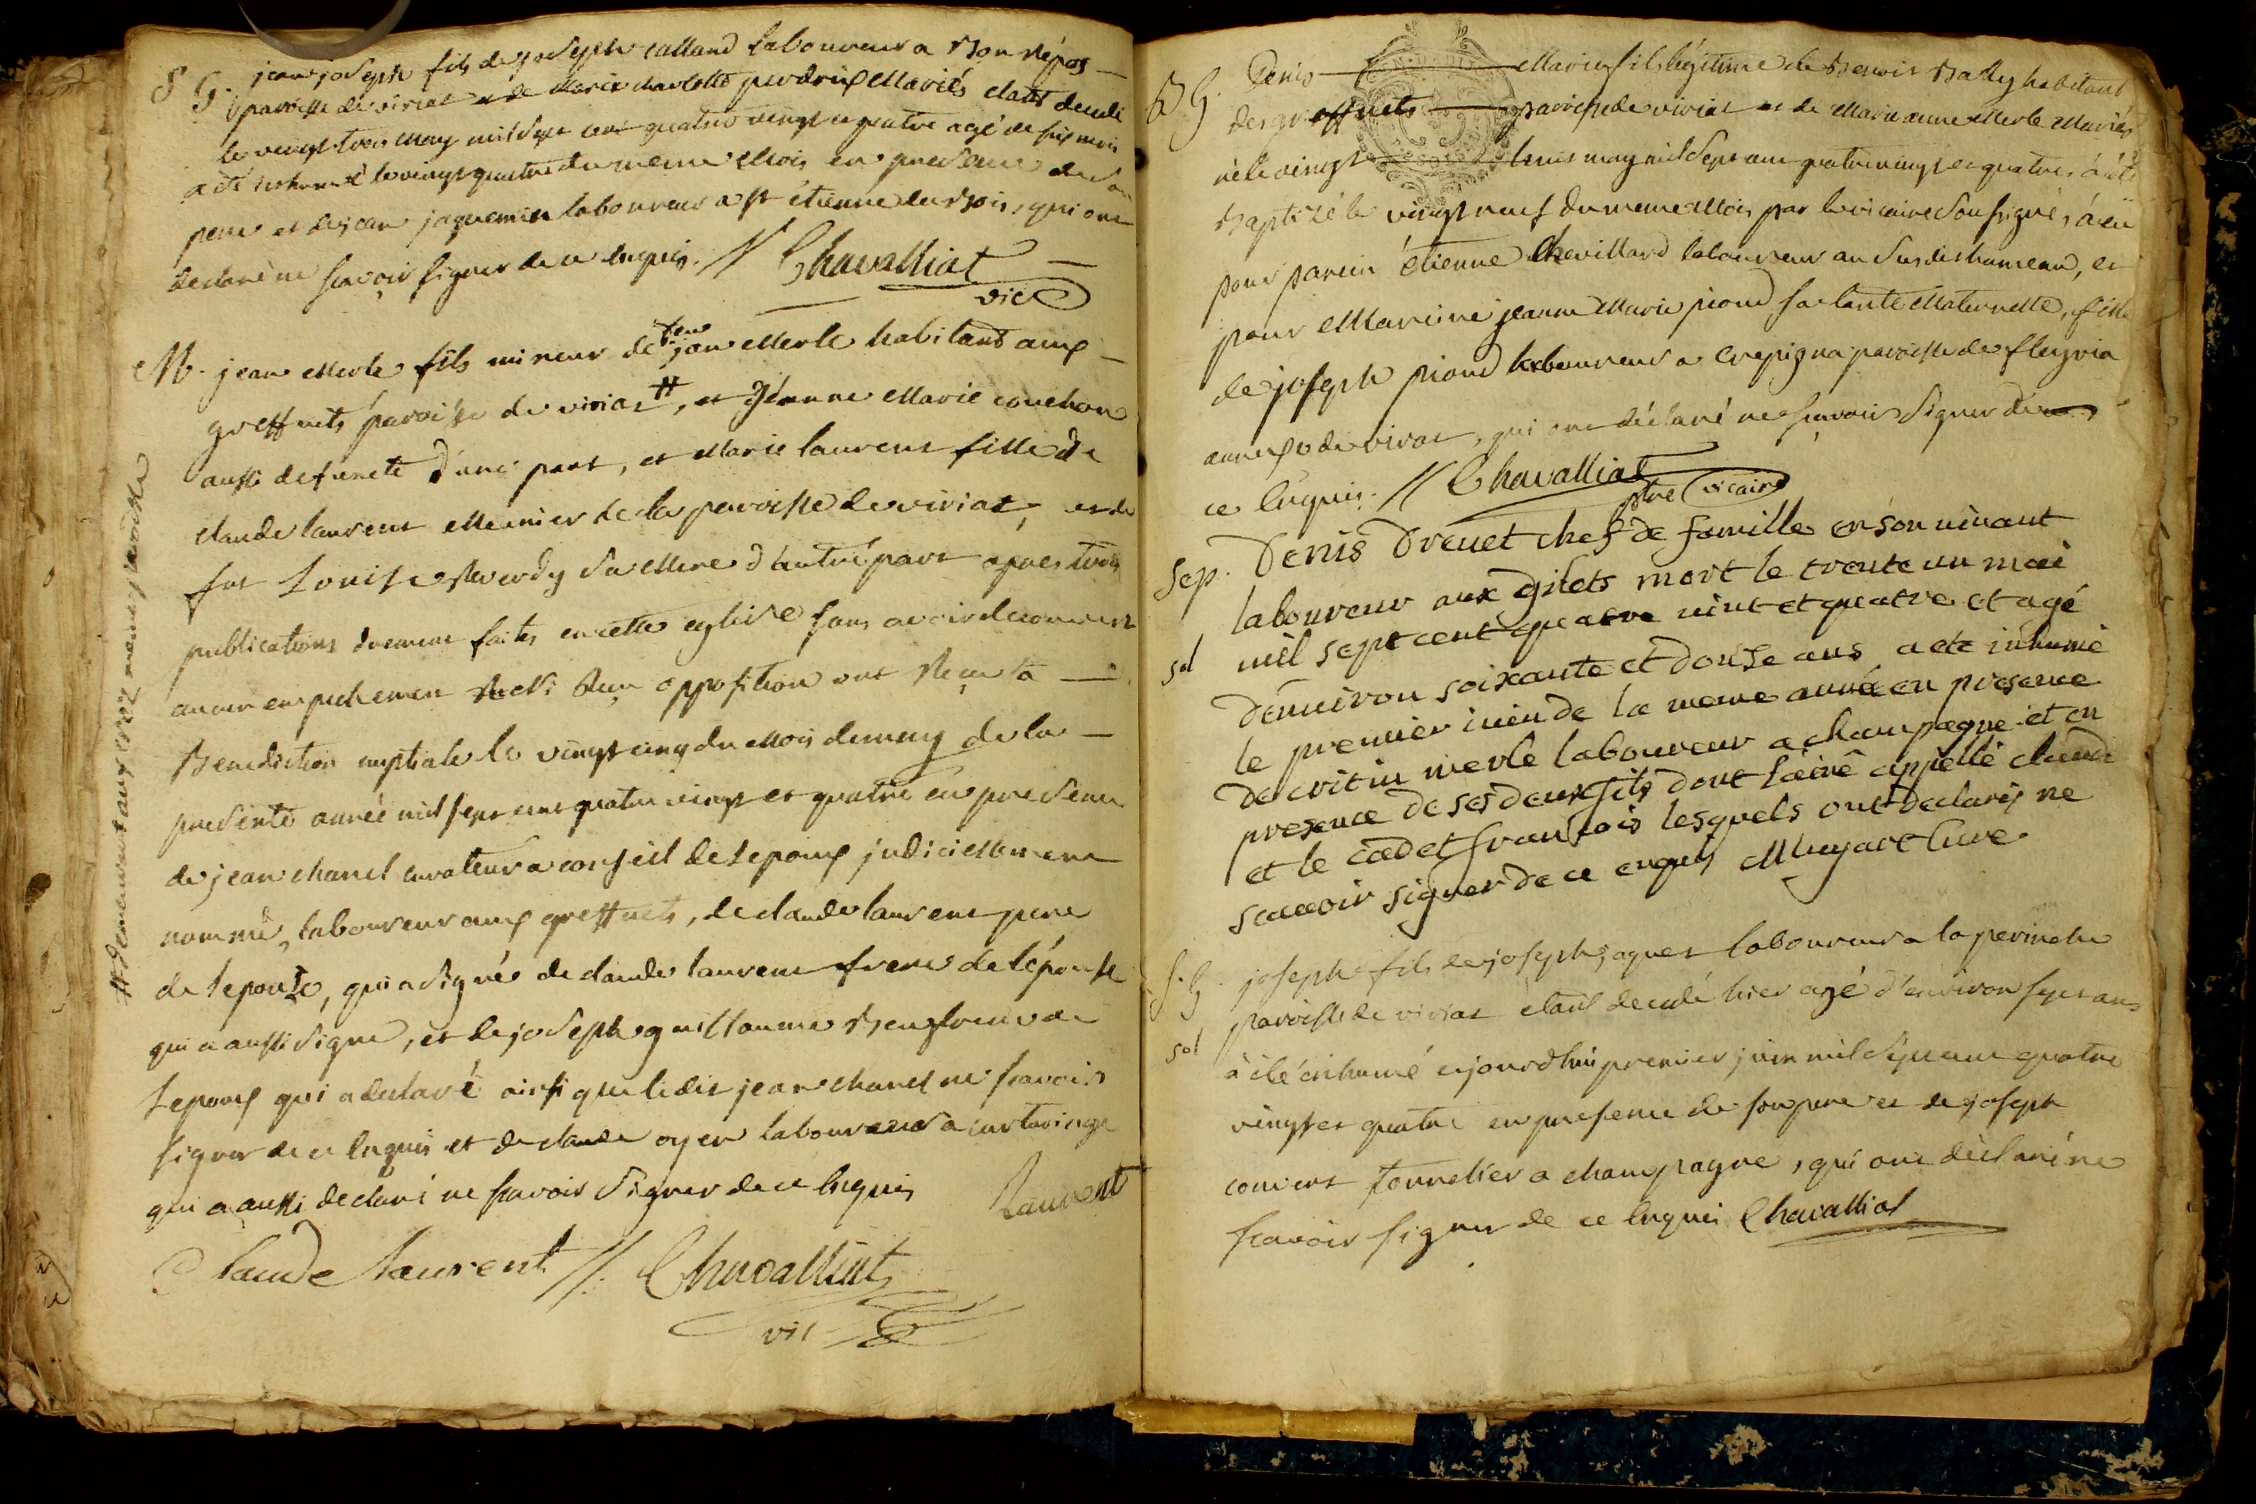 S G. jean joseph fils de joseph calland laboureur a Bon Répos
paroisse de viriat et de Marie charlotte perdrix Mariés etant decedé
le vingt trois May mil sept cent quatre vingt et quatre agé de six mois
a été inhumé le vingt quatre du meme Mois en presence de son
pere et de jean jaquemin laboureur a st étienne du bois, qui ont
declaré ne scavoir signer de ce enquis. // Chavalliat
vic
M. jean Merle fils mineur de feu jean Merle habitant aux
greffets paroisse de viriat #, et jéanne Marie couchon
aussi defuncte d'une part, et Marie laurent fille de
claude laurent Meunier de la paroisse de viriat, et de
fut Louise sa Mere d'autre part apres trois
publications duement faites en cette eglise sans avoir decouvert
aucun empechement ni opposition ont Reçu la
Benediction nuptiale le vingt cinq du Mois de may de la
presente année mil sept cent quatre vingt et quatre en presence
de jean chanel curateur a conseil de lepoux judiciellement
nommé, laboureur aux greffets, de claude laurent pere
de lepouse, qui a signé de claude laurent frere de lépouse
qui a aussi signé, et de joseph guillaume beaufrere de
lepoux qui a declaré ainsi que ledit jean chanel ne scavoir
signer de ce enquis et de claude oyen laboureur a curtaringe
qui a aussi declaré ne scavoir signer de ce enquis Laurent
Claude Laurent //. Chavalliat
vic
# demeurant aux meme paroisse
B G. Denis Marie fils légitime de Benoit Bally habitant
des greffets paroisse de viriat et de Marie anne Merle Mariés
né le vingt huit may mil sept cent quatre vingt et quatre, à été
Baptizé le vingt neuf du meme Mois par le vicaire soussigné, à eu
pour parein étienne chevillard laboureur au susdit hameau, et
pour Mareine jeanne Marie piond sa tante Maternelle, fille
de joseph piond laboureur a crepigna paroisse de fleyria
annexe de viriat, qui ont déclaré ne scavoir signer de
ce Enquis. // Chavalliat
ptre vicaire
Sep. Denis Drevet chef de famille en son vivant
laboureur aux gilets mort le trente un mai
sol mil sept cent quatre vint et quatre et agé
d'enuiron soixante et douse ans a ete inhumé
le premier iuin de la meme année en presence
de critin merle laboureur a champagne et en
presence de ses deux fils dont l'ainé appellé claude
et le cadet francois lesquels ont declaré ne
scavoir signer de ce enquis Muyart Curé
S. G. joseph fils de joseph jaquet laboureur a la perinche
paroisse de viriat etant decedé hier agé d'environ sept ans
sol à été inhumé ajourdhui premier juin mil sept cent quatre
vingt et quatre en presence de son pere et de joseph
convert tonnelier a champagne, qui ont déclaré ne
scavoir signer de ce enquis Chavalliat